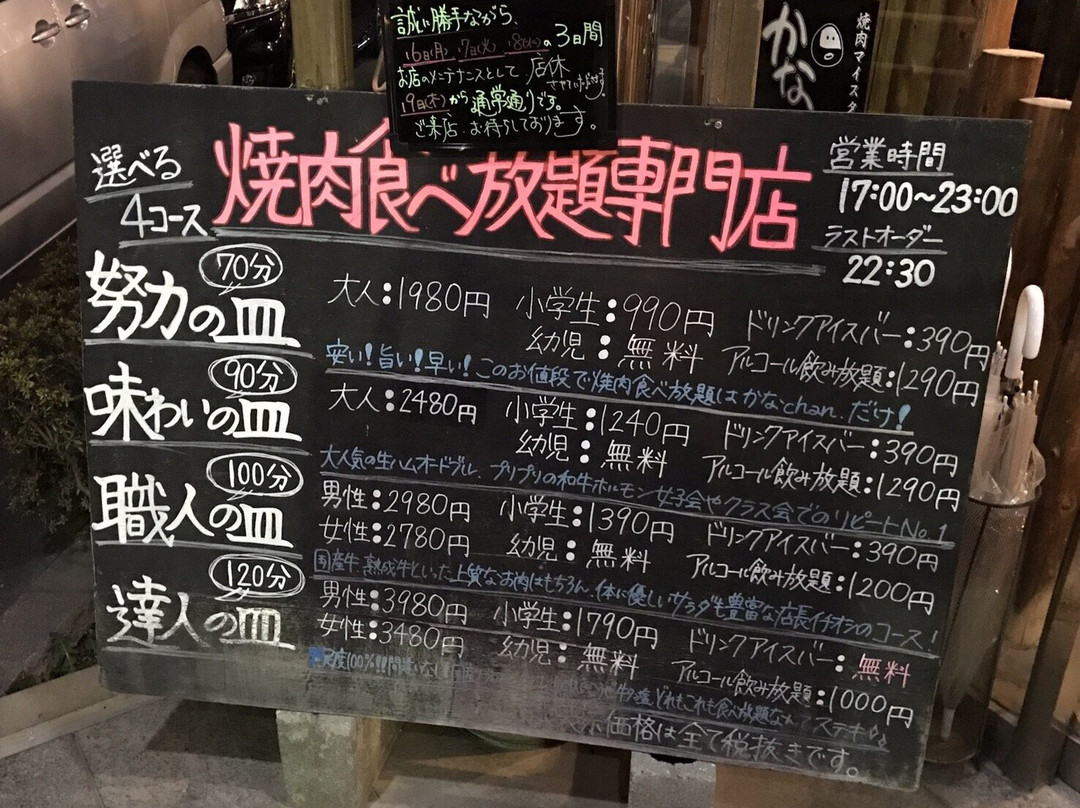 誠に勝手ながら、
16日(月) 17日(火) 18日(水)の3日間
お店のメンテナンスとして店休
させていただきます。
19日(木)から通常通りです。
ご来店、お待ちしております。
焼肉マイスタ
かな
選べる
4コース
焼肉食べ放題専門店
営業時間
17:00〜23:00
ラストオーダー
22:30
努力の皿 70分
大人:1980円 小学生:990円 ドリンクアイスバー:390円
幼児:無料 アルコール飲み放題:1290円
安い!旨い!早い!このお値段で焼肉食べ放題はかなchan.だけ!
味わいの皿 90分
大人:2480円 小学生:1240円 ドリンクアイスバー:390円
幼児:無料 アルコール飲み放題:1290円
大人気の生ハムオードブル、プリプリの和牛ホルモン女子会やクラス会でのリピートNo.1
職人の皿 100分
男性:2980円 小学生:1390円 ドリンクアイスバー:390円
女性:2780円 幼児:無料 アルコール飲み放題:1200円
国産牛、熟成牛といった上質なお肉はもちろん、体に優しいサラダも豊富な店長イチオシのコース!
達人の皿 120分
男性:3980円 小学生:1790円 ドリンクアイスバー:無料
女性:3480円 幼児:無料 アルコール飲み放題:1000円
満足度100%!!! どれもこれも食べ放題なんてステキ
価格は全て税抜きです。